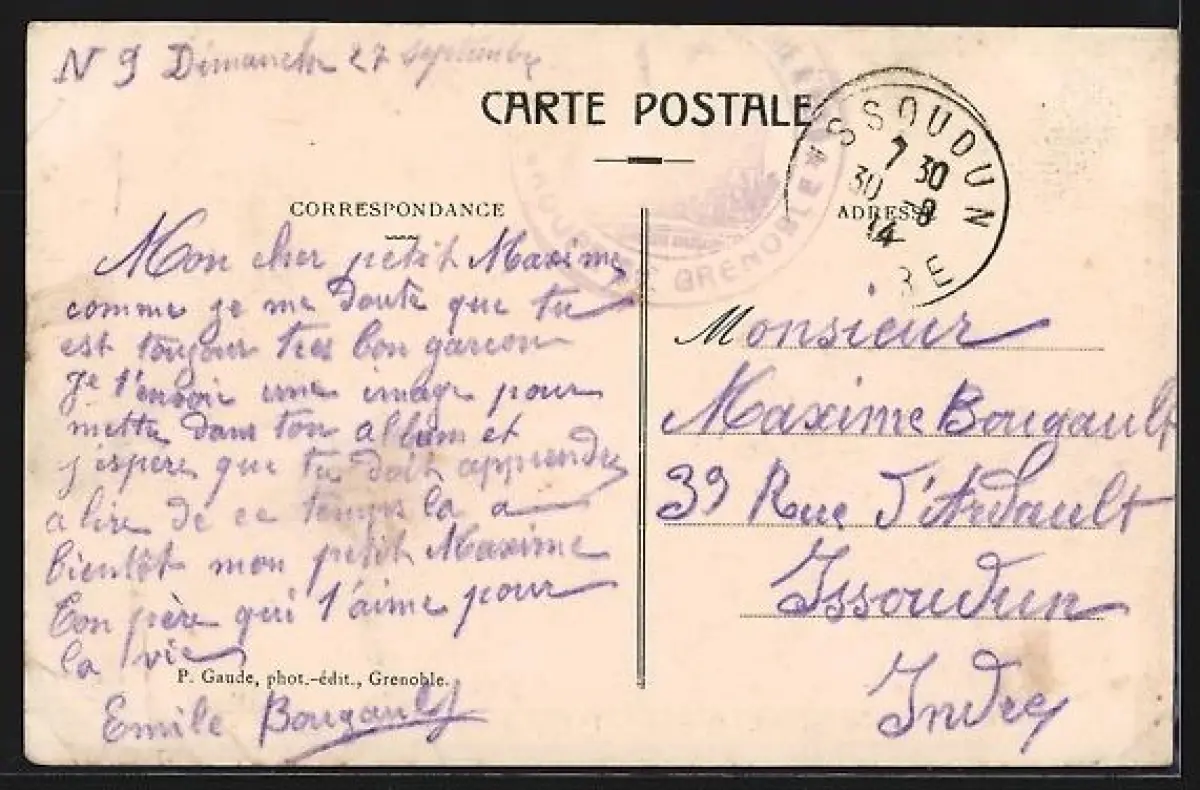 N 9 Dimanche 27 septembre
CARTE POSTALE
CORRESPONDANCE
Mon cher petit Maxime
comme je me doute que tu
est toujour tres bon garcon
je t'envoie une image pour
mettre dans ton album et
j'espere que tu doit apprendre
a lire de ce temps la a
bientôt mon petit Maxime
Ton père qui t'aime pour
la vie
P. Gaude, phot.-édit., Grenoble.
Emile Bougault
GRENOBLE
ISSOUDUN
7 30
30 -9
14
RE
ADRESSE
Monsieur
Maxime Bougault
39 Rue D'Ardault
Issoudun
Indre